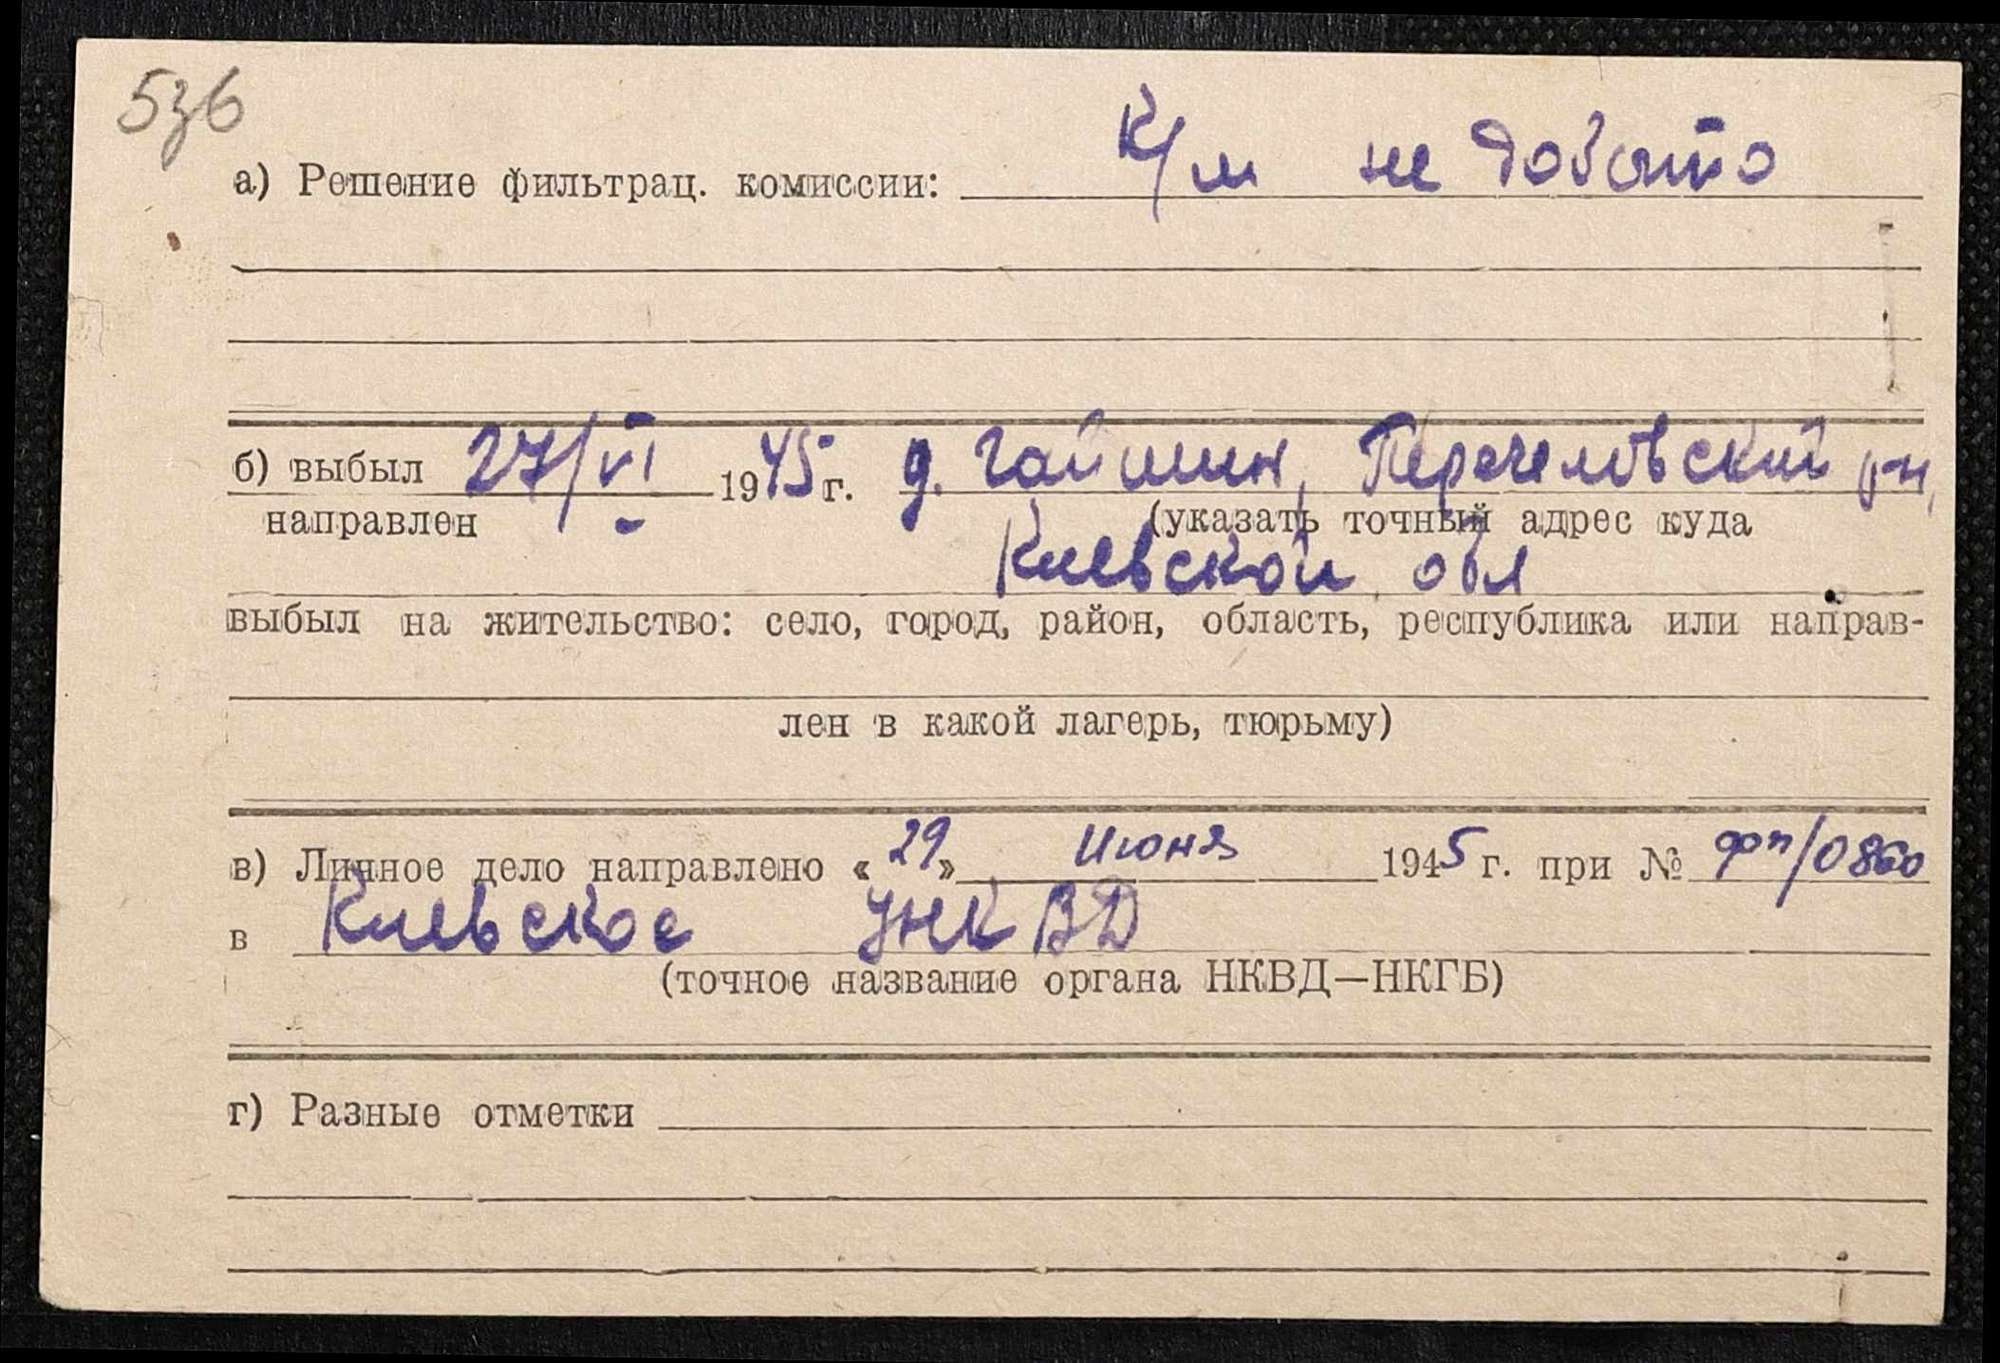 536
К/м не добыто
а) Решение фильтрац. комиссии:
б) выбыл 27/VI 1945 г. д. Гайшин, Перечеловский р-н,
направлен (указать точный адрес куда
Киевской обл
выбыл на жительство: село, город, район, область, республика или направ-
лен в какой лагерь, тюрьму)
в) Личное дело направлено «29» Июня 1945 г. при № фп/0860
в Киевское УНКВД
(точное название органа НКВД—НКГБ)
г) Разные отметки